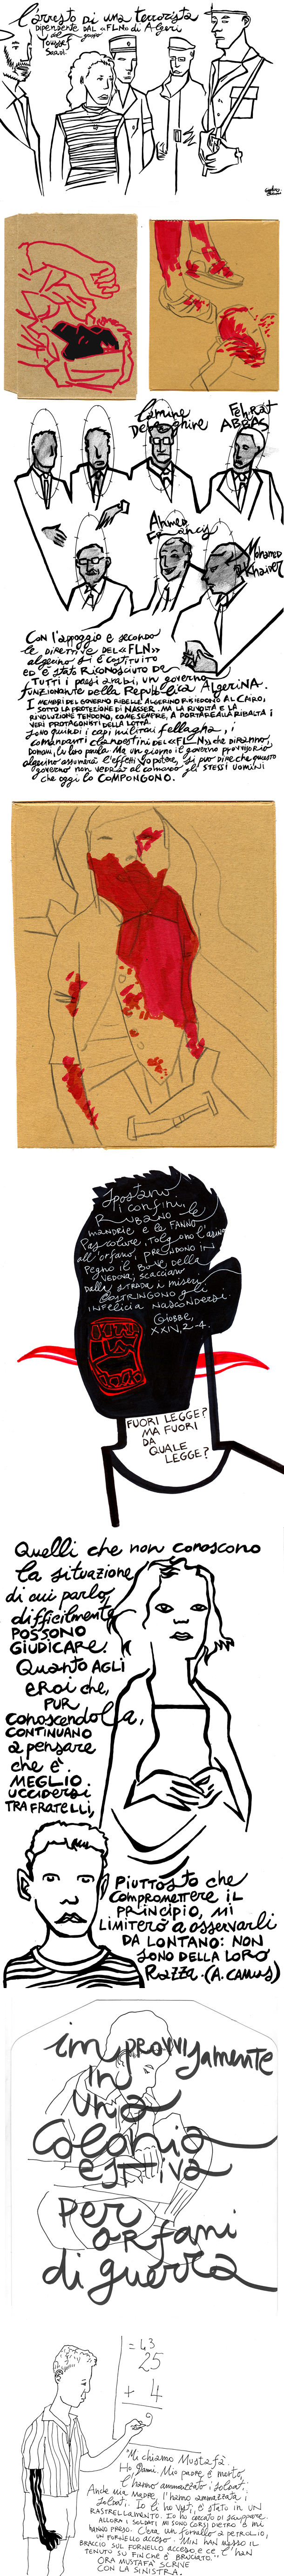 l'arresto di una terrorista
dipendente DAL «FLN» di Algeri
del gruppo
Youssef
Saadi.
Lamine
Debaghine
Fehrat
ABBAS
Ahmed
Francis
Mohamed
Khaider
CON l'appoggio e secondo
le DIRETTIVE DEL «FLN»
algerino si è COSTITUITO
ED È STATO RICONOSCIUTO DA
TUTTI i paesi arabi, un governo
FUNZIONANTE della Repubblica AlgeriNA.
I MEMBRI DEL GOVERNO RIBELLE ALGERINO RISIEDONO AL CAIRO,
SOTTO LA PROTEZIONE DI NASSER. MA LA RIVOLTA E LA
RIVOLUZIONE TENDONO, COME SEMPRE, A PORTARE ALLA RIBALTA i
VERI PROTAGONISTI DELLA LOTTA.
Sono quindi i capi militari fellagha, i
comandanti clandestini del «FLN» che diranno,
domani, la loro parola. Ma un giorno il governo provvisorio
algerino assumerà l'effettivo potere, si può dire che questo
governo non vedrà al comando gli STESSI UOMINI
che oggi lo COMPONGONO.
Spostano
i confini,
RUBANO le
mandrie e le FANNO
Pascolare, Tolgono l'asino
all'orfano, PRENDONO IN
Pegno il BOVE DELLA
VEDOVA; scacciano
DALLA STRADA i miseri,
COSTRINGONO gli
INFELICI A NASCONDERSI.
Giobbe,
XXIV, 2-4.
FUORI LEGGE?
MA FUORI
DA
QUALE
LEGGE?
Quelli che non conoscono
la situazione
di cui parlo,
difficilmente
POSSONO
GIUDICARE.
Quanto AGLI
eroi che,
PUR
conoscendola,
CONTINUANO
a pensare
che è
MEGLIO
uccidersi
TRA FRATELLI,
PIUTTOSTO che
compromettere il
PRINCIPIO, MI
LIMITERÒ A OSSERVARLI
DA LONTANO: NON
SONO DELLA LORO
RAZZA. (A. CAMUS)
improvvisamente
in
una
colonia
estiva
per
orfani
di guerra
= 43
25
+ 4
9
"Mi chiamo Mustafà.
Ho anni. Mio padre è morto,
l'hanno ammazzato i soldati.
Anche mia MADRE, l'hanno ammazzata i
soldati. Io li ho visti, è stato in UN
RASTRELLAMENTO. Io ho cercato di scappare.
ALLORA I SOLDATI MI SONO CORSI DIETRO E MI
HANNO PRESO. C'era un fornello a petrolio,
UN FORNELLO ACCESO. M'han messo il
BRACCIO SUL FORNELLO ACCESO E ce l'han
TENUTO SU FINCHÉ È BRUCIATO."
ORA MUSTAFÀ SCRIVE
CON LA SINISTRA.